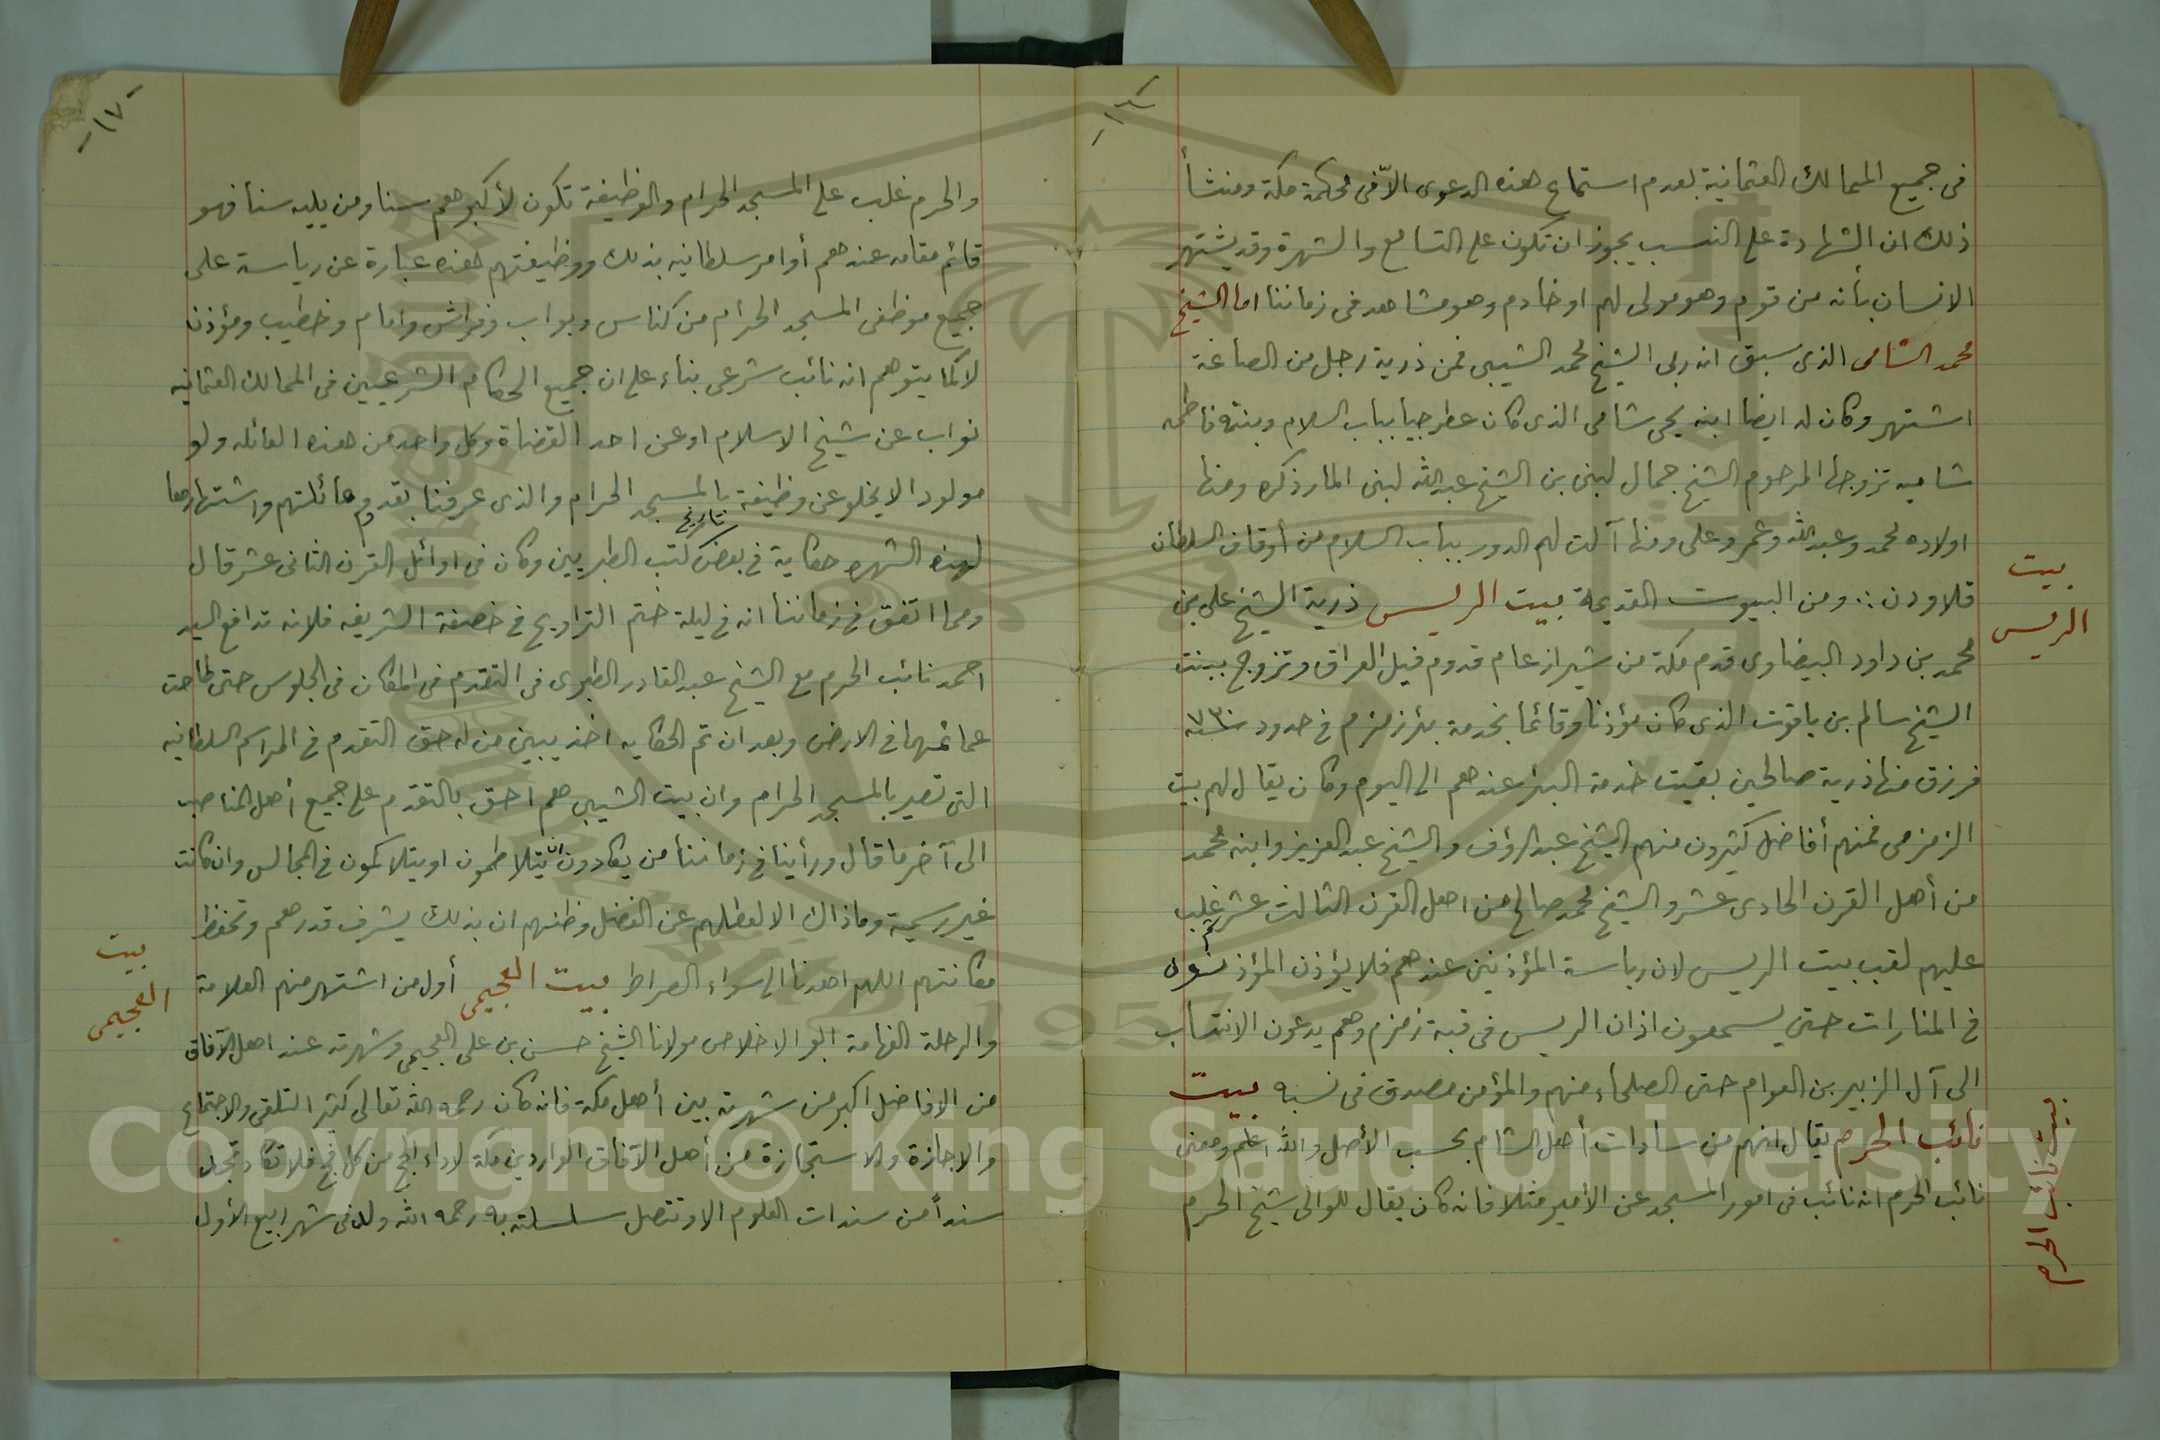 في جميع الممالك العثمانية بعدم استماع هذه الدعوى الا في محكمة مكة ومنشأ
ذلك ان الشهادة على النسب يجوز ان تكون على التسامع والشهرة وقد يشتهر
الانسان بأنه من قوم وهو مولى لهم او خادم وهو مشاهد في زماننا اما الشيخ
محمد الشامى الذى سبق انه ربى الشيخ محمد الشيبى فمن ذرية رجل من الصاغة
اشتهر وكان له ايضا ابنه يحى شامى الذى كان عطرجيا بباب السلام وبنته فاطمه
شاميه تزوجها المرحوم الشيخ جمال لبنى بن الشيخ عبد الله لبنى المار ذكره ومنها
اولاده محمد وعبد الله وعمر وعلى ومنها آلت لهم الدور بباب السلام من أوقاف السلطان
قلاودن ∴ ومن البيوت القديمة بيت الريس ذرية الشيخ على بن
محمد بن داود البيضاوى قدم مكة من شيراز عام قدوم فيل العراق وتزوج ببنت
الشيخ سالم بن ياقوت الذى كان مؤذنا وقائما بخدمة بئر زمزم في حدود سنة ٧٣٠
فرزق منها ذرية صالحين بقيت خدمة البئر عندهم الى اليوم وكان يقال لهم بيت
الزمزمى فمنهم أفاضل كثيرون منهم الشيخ عبد الرؤف والشيخ عبد العزيز وابنه محمد
من أهل القرن الحادى عشر والشيخ محمد صالح من اهل القرن الثالث عشر ثم غلب
عليهم لقب بيت الريس لان رياسة المؤذنين عندهم فلا يؤذن المؤذنون
في المنارات حتى يسمعون اذان الريس في قبة زمزم وهم يدعون الانتساب
الى آل الزبير بن العوام حتى الصلحاء منهم والمؤمن مصدق في نسبه بيت
نائب الحرم يقال انهم من سادات أهل الشام بحسب الأصل والله اعلم ومعنى
نائب الحرم انه نائب في امور المسجد عن الأمير مثلا فانه كان يقال للوالى شيخ الحرم
بيت
الريس
بيت نائب الحرم
-١٧-
والحرم غلب على المسجد الحرام والوظيفة تكون لأكبرهم سنا ومن يليه سنا فهو
قائم مقامه عندهم أوامر سلطانيه بذلك ووظيفتهم هذه عبارة عن رياسة على
جميع موظفى المسجد الحرام من كناس وبواب وفراش وامام وخطيب ومؤذن
لا كما يتوهم انه نائب شرعى بناء على ان جميع الحكام الشرعيين في الممالك العثمانيه
نواب عن شيخ الاسلام او عن احد القضاة وكل واحد من هذه العائله ولو
مولود الا يخلو عن وظيفة بالمسجد الحرام والذى عرفنا بقدوم عائلتهم واشتهارها
لهذه الشهره حكاية في بعض كتب تاريخ الطبريين وكان في اوائل القرن الثانى عشر قال
ومما اتفق في زماننا انه في ليلة ختم التراويح في خصفة الشريفه فلانه تدافع السيد
احمد نائب الحرم مع الشيخ عبد القادر الطبرى في التقدم في المكان في الجلوس حتى طاحت
عمائمهما في الارض وبعد ان تم الحكايه اخذ يبين من له حق التقدم في المراسم السلطانيه
التى تصير بالمسجد الحرام وان بيت الشيبى هم احق بالتقدم على جميع أهل المناصب
الى آخر ما قال ورأينا في زماننا من يكادون ان يتلاطمون او يتلاكمون في المجالس وان كانت
غير رسمية وما ذاك الا لعطلهم عن الفضل وظنهم ان بذلك يشرف قدرهم وتحفظ
مكانتهم اللهم اهدنا الى سواء الصراط بيت العجيمى أول من اشتهر منهم العلامة
والرحلة الفهامة ابو الاخلاص مولانا الشيخ حسن بن على العجيمى وشهرته عند اهل الآفاق
من الافاضل اكبر من شهرته بين أهل مكة فانه كان رحمه الله تعالى كثير التلقى والاجتماع
والاجازة والاستجازة من أهل الآفاق الواردين مكة لاداء الحج من كل فج فلا تكاد تجد
سنداً من سندات العلوم الا وتتصل سلسلته به رحمه الله ولد في شهر ربيع الأول
بيت
العجيمى
Copyright © King Saud University
1957